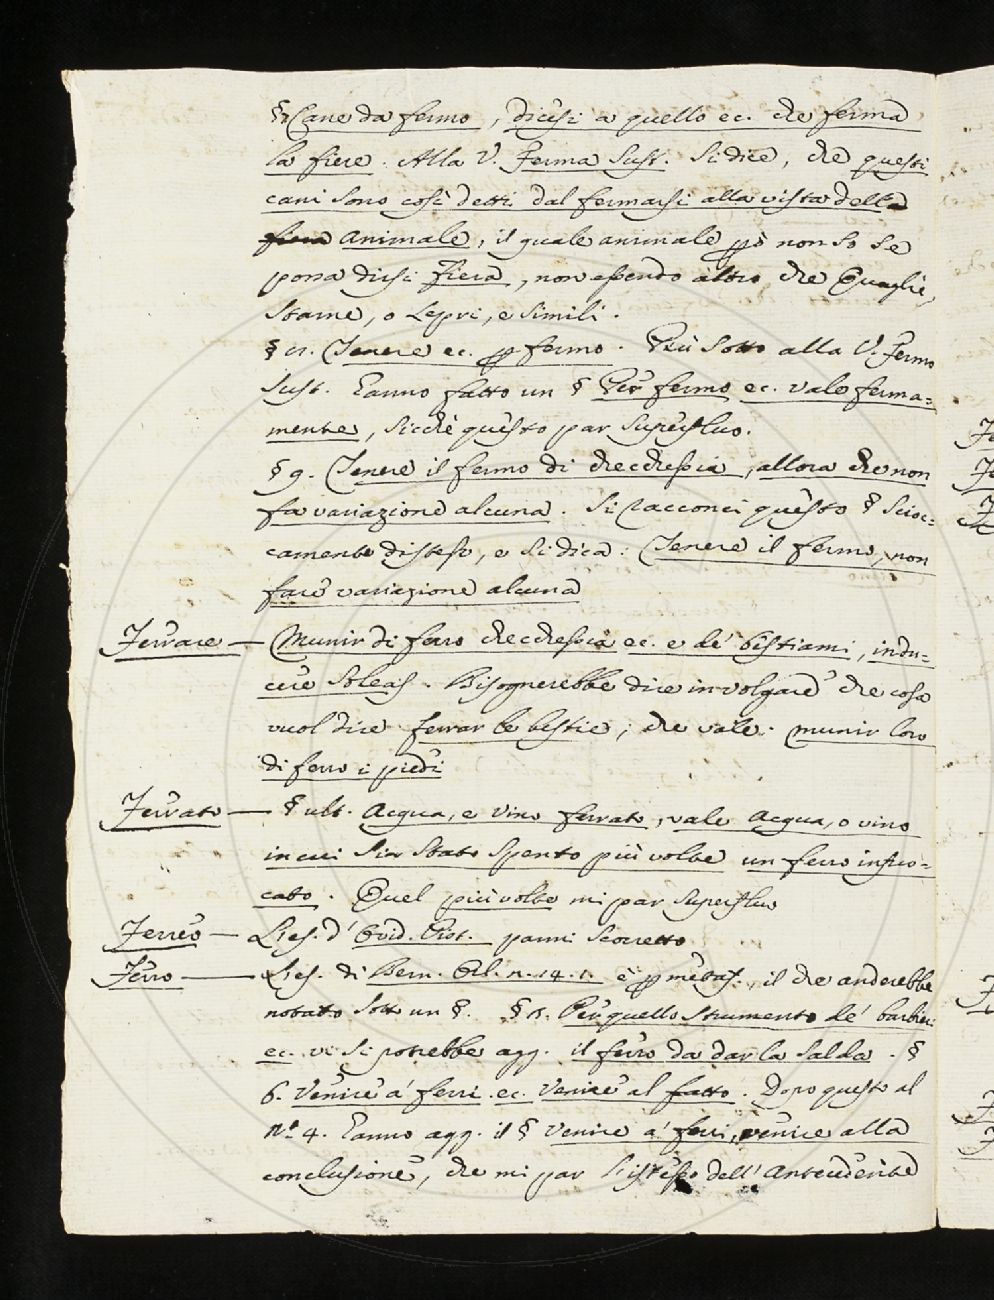 § Cane da fermo, dicesi a quello ec. che ferma
la fiere. Alla V. Ferma Sust. Si dice, che questi
cani sono così detti dal fermarsi alla vista della
fiera animale, il quale animale pò non so se
possa dirsi Fiera, non essendo altro che Quaglie,
Starne, o Lepri, e simili.
§ Tenere ec. p fermo. Più sotto alla V. Fermo
Sust. Hanno fatto un § Per fermo ec. vale ferma=
mente, sicchè questo par superfluo.
§ 9. Tenere il fermo di checchessia, allora che non
fa variazione alcuna. Si racconci questo § scioc=
camente disteso, e si dica: Tenere il fermo, non
fare variazione alcuna
Ferrare — Munir di ferro checchessia ec. e de' bestiami, indu=
cere soleas. Bisognerebbe dire in volgare che cosa
vuol dire ferrar le bestie; che vale. munir loro
di ferro i piedi
Ferrato — § ult. Acqua, e vino ferrato, vale Acqua, o vino
in cui sia stato spento più volte un ferro infuo=
cato. Quel più volte mi par superfluo
Ferreo — L'es. d' Ovid. Pist. parmi scorretto
Ferro — L'es. di Bern. Orl. n. 14. 1. è p metaf., il che anderebbe
notato sotto un §. § Per quello strumento de' barbieri
ec. vi si potrebbe agg. il ferro da dar la salda. §
6. Venire a' ferri. ec. Venire al fatto. Dopo questo al
n.° 4. Hanno agg. il § venire a' ferri, venire alla
conclusione, che mi par l'istesso dell'antecedente